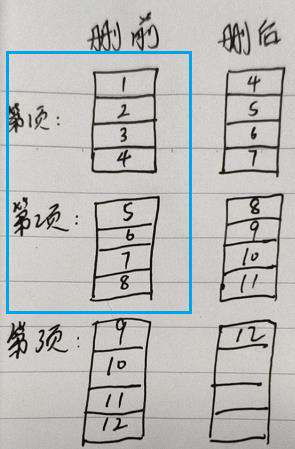 删前 删后
第1页:
1 4
2 5
3 6
4 7
第2页:
5 8
6 9
7 10
8 11
第3页:
9 12
10
11
12